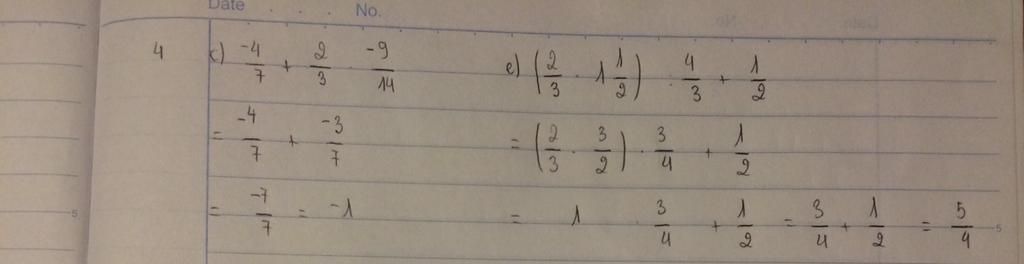 Date . . . . No.
4 c) -4/7 + 2/3 · -9/14
= -4/7 + -3/7
= -7/7 = -1
e) (2/3 · 1 1/2) · 4/3 + 1/2
= (2/3 · 3/2) · 3/4 + 1/2
= 1 · 3/4 + 1/2 = 3/4 + 1/2 = 5/4
5
5